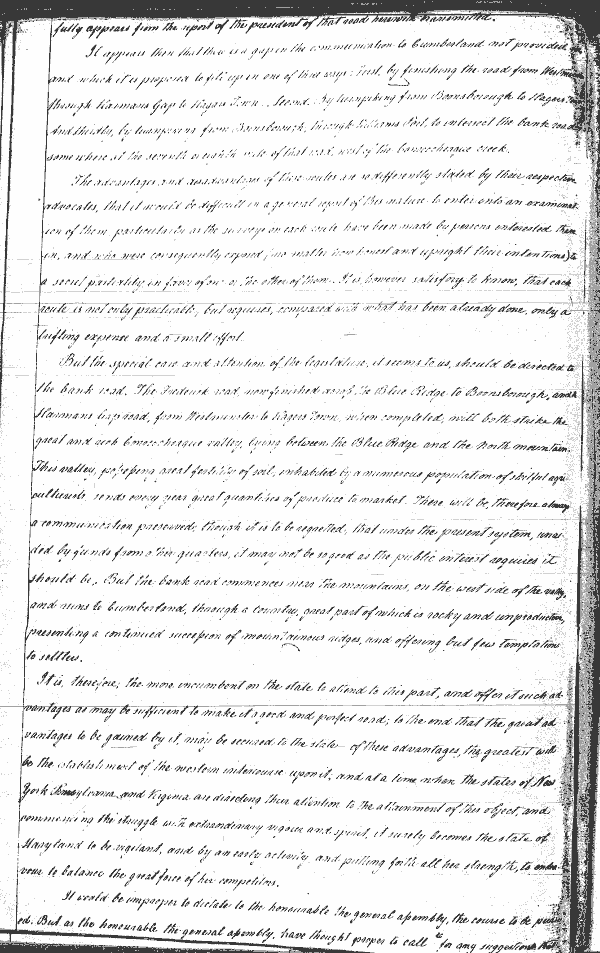 fully appears from the report of the president of that road herewith transmitted.
It appears then that there is a gap in the communication to Cumberland not provided
and which it is proposed to fill up in one of three ways: First, by finishing the road from Westmin
through Harmans Gap to Hagers Town. Second. By turnpiking from Boonsborough to Hagers Town
And thirdly, by turnpiking from Boonsborough, through Williams Port, to intersect the bank road
some where at the seventh or eighth mile of that road, west of the conococheague creek.
The advantages and disadvantages of these routes are so differently stated by their respective
advocates, that it would be difficult in a general report of this nature to enter into an examinat
ion of them particularly as the surveys on each route have been made by persons interested there
in, and who were consequently exposed (no matter how honest and upright their intentions) to
a secret partiality in favor of one or the other of them. It is however satisfory to know, that each
route is not only practicable, but requires, compared with what has been already done, only a
trifling expence and a small effort.
But the special care and attention of the legislature, it seems to us, should be directed to
the bank road. The Frederick road, now finished across the Blue Ridge to Boonsborough, and
Harmans Gap road, from Westminster to Hagers Town, when completed, will both strike the
great and rich Conococheague valley, lying between the Blue Ridge and the North mountain.
This valley, possessing great fertility of soil, inhabited by a numerous population of skilful agri
culturists, sends every year great quantities of produce to market. There will be, therefore always
a communication preserved; though it is to be regretted, that under the present system, unai
ded by funds from other quarters, it may not be so good as the public interest requires it
should be. But the bank road commences near the mountains, on the west side of the valley,
and runs to Cumberland, through a country, great part of which is rocky and unproductive,
presenting a continued succession of mountainous ridges, and offering but few temptations
to settlers.
It is, therefore, the more incumbent on the state to attend to this part, and offer it such ad
vantages as may be sufficient to make it a good and perfect road; to the end that the great ad
vantages to be gained by it, may be secured to the state of these advantages, the greatest will
be the establishment of the western intercourse upon it, and at a time when the states of New
York Pennsylvania and Virginia are directing their attention to the attainment of this object, and
commencing the struggle with extraordinary vigour and spirit, it surely becomes the state of
Maryland to be vigilant, and by an early activity and putting forth all her strength, to endea
vour to balance the great force of her competitors.
It would be improper to dictate to the honourable the general assembly, the course to be pursu
ed. But as the honourable the general assembly have thought proper to call for any suggestions that